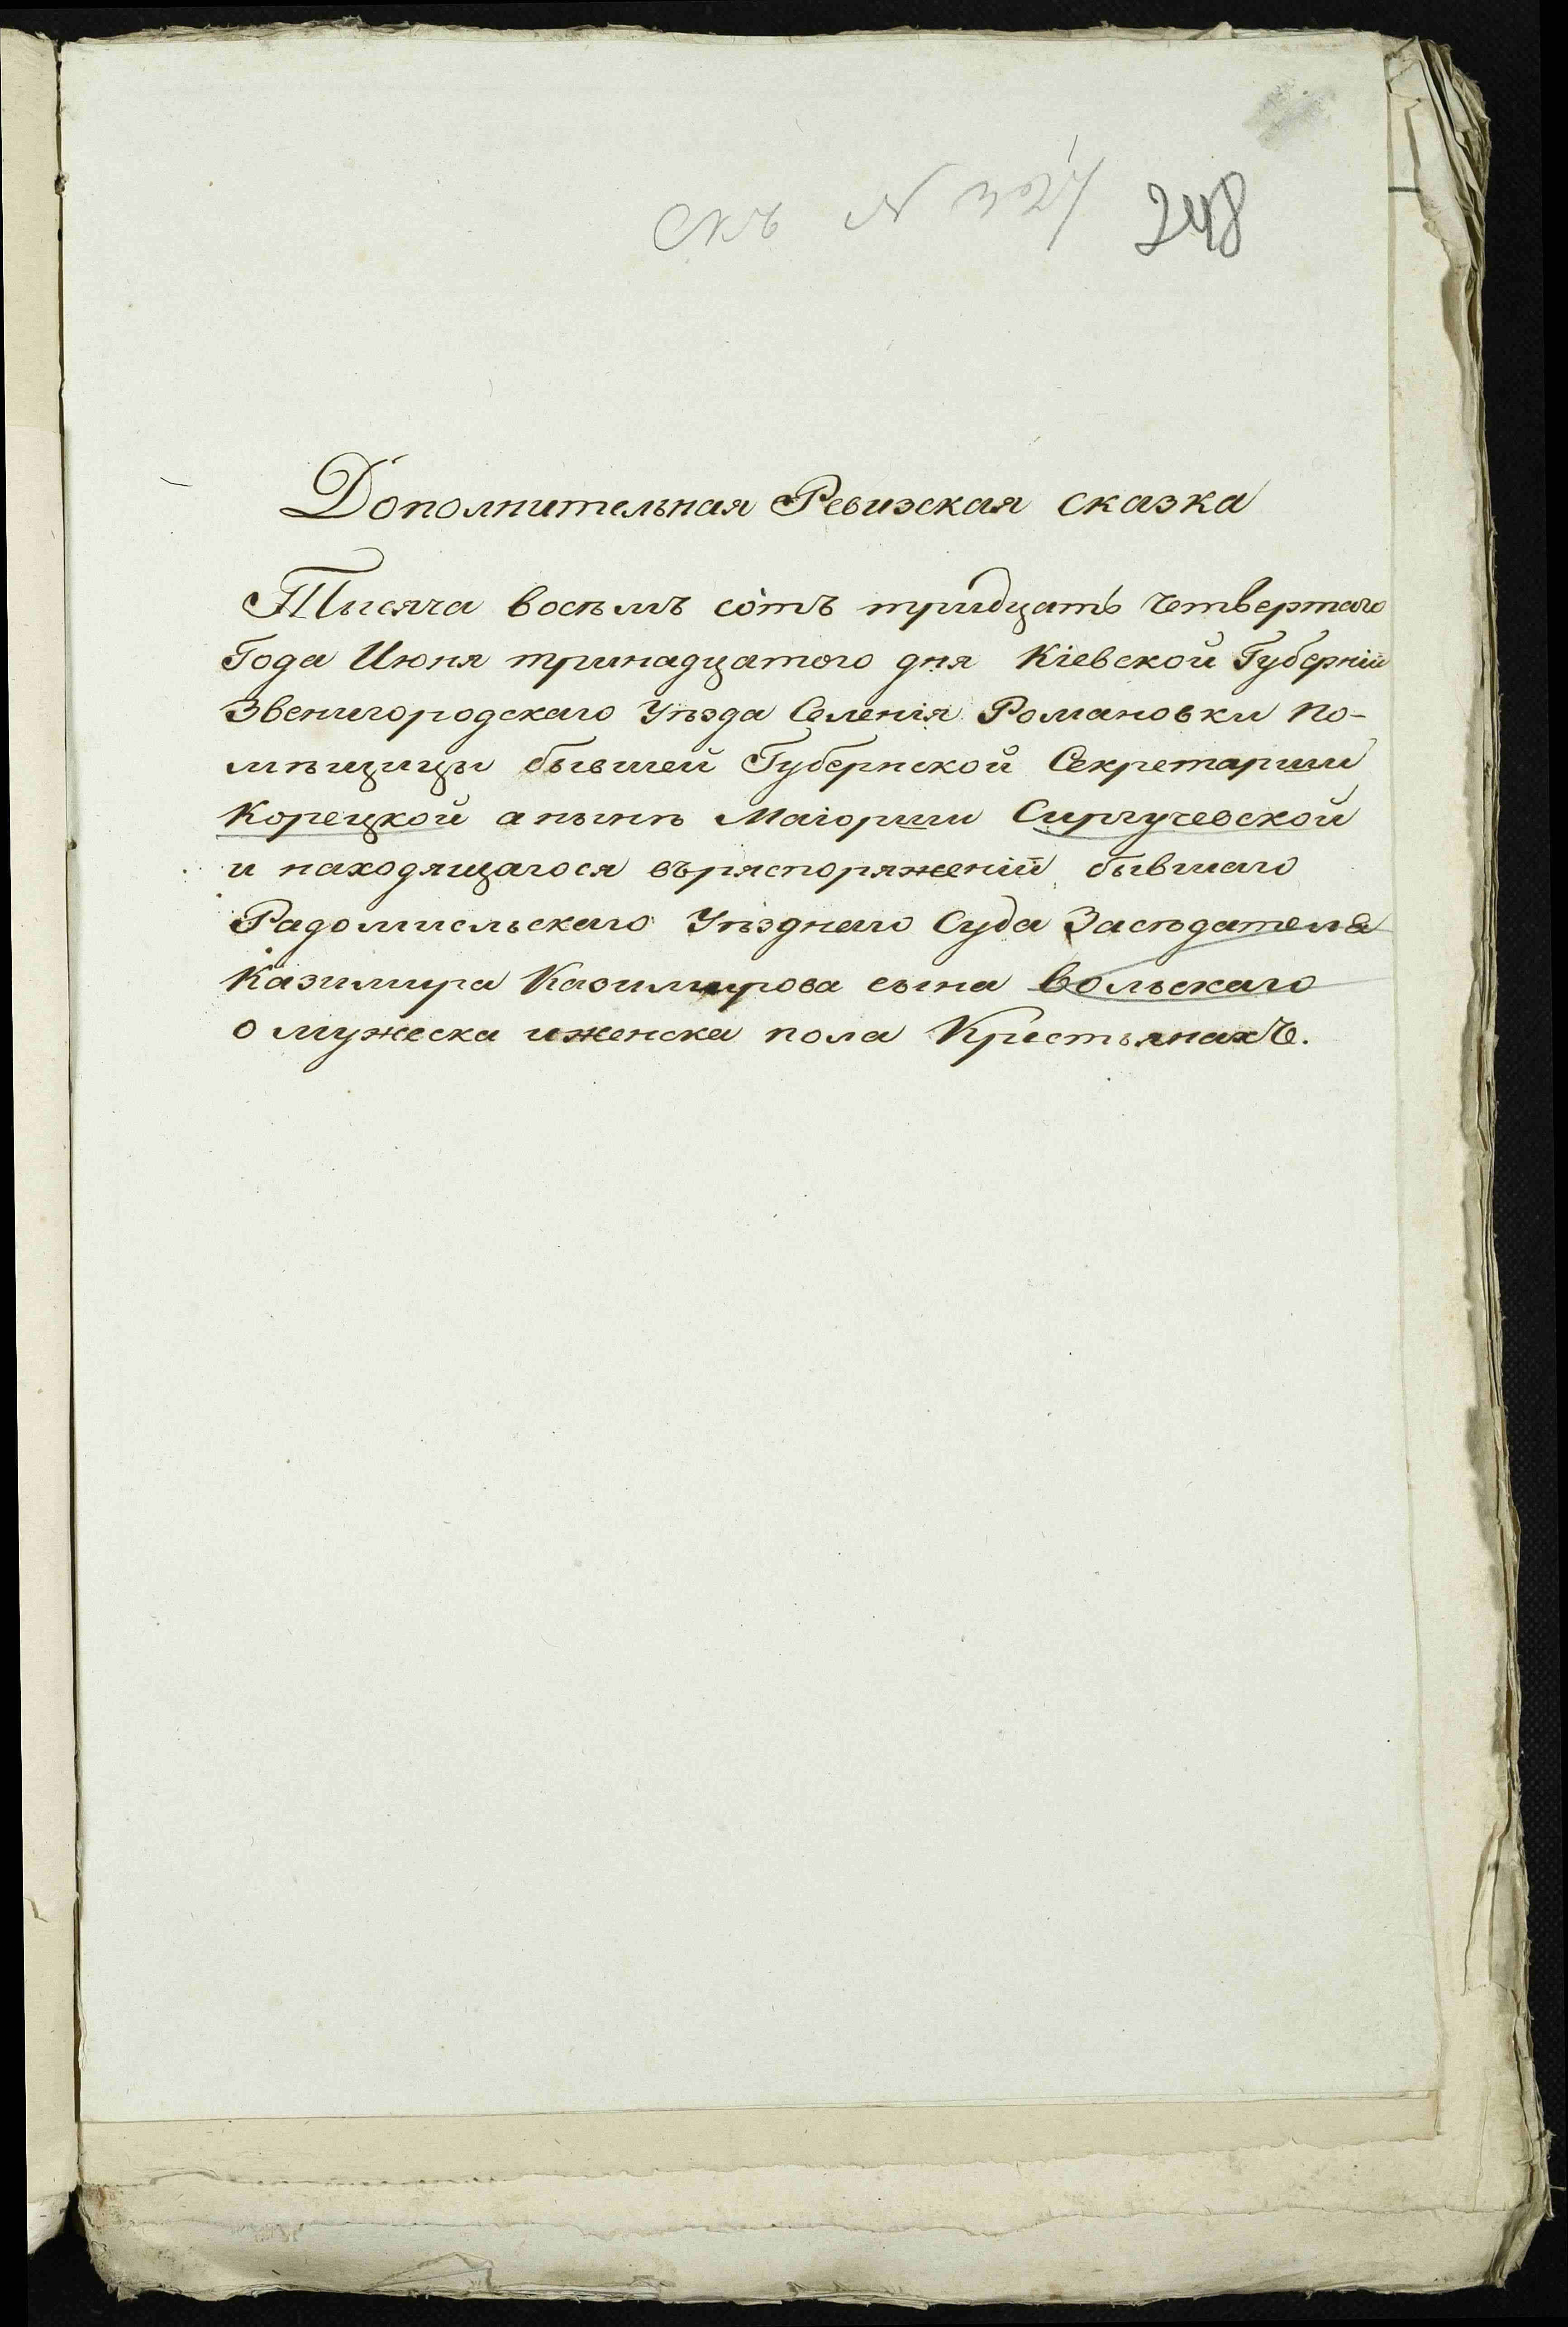 248
Дополнительная Ревизская сказка
Тысяча восѣмъ сотъ тридцать четвертаго
Года Июня тринадцатого дня Кіевской Губерніи
Звенигородскаго Уѣзда Селенія Романовки по-
мѣщицы бывшей Губернской Секретарши
Корецкой а нынѣ Маіорши Сирчучевской
и находящагося въ распоряженіи бывшаго
Радомисльскаго Уѣзднаго Суда Засѣдателя
Казимира Казимирова сына Вольскаго
о мужеска и женска пола Крестьянахъ.